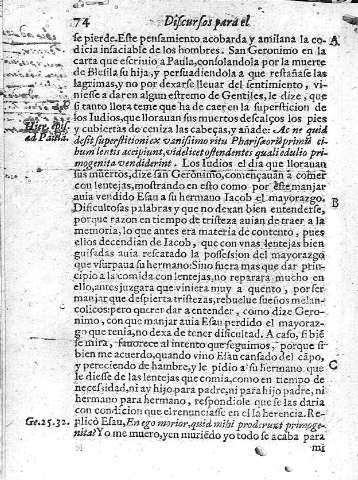 74 Discursos para el
se pierde. Este pensamiento acobarda y amilana la co- A
dicia insaciable de los hombres. San Geronimo en la
carta que escriuio a Paula, consolandola por la muerte
de Blesila su hija, y persuadiendola a que restañasse las
lagrimas, y no por dexarse lleuar del sentimiento, vi-
niesse a dar en algun estremo de Gentiles, le dize, que
si tanto llora teme que ha de caer en la supersticion de
los Iudios, que llorauan sus muertos descalços los pies
y cubiertas de ceniza las cabeças, y añade: Ac ne quid
ad Paula.
desit superstitioni ex vanissimo ritu Pharisæorũ primũ ci
bum lentis accipiunt, videlicet ostendentes quali edulio pri
mogenita vendiderint. Los Iudios el dia que llorauan
sus muertos, dize san Geronimo, començauan a comer
con lentejas, mostrando en esto como por este manjar
auia vendido Esau a su hermano Iacob el mayorazgo. B
Dificultosas palabras y que no dexan bien entenderse,
porque razon en tiempo de tristeza auian de traer a la
memoria, lo que antes era materia de contento, pues
ellos decendian de Iacob, que con vnas lentejas bien
guisadas auia rescatado la possession del mayorazgo
que vsurpaua su hermano: Sino fuera mas que dar prin-
cipio a la comida con lentejas, no reparara mucho en
ello, antes juzgara que viniera muy a quento, por ser
manjar que despierta tristezas, rebuelue sueños melan-
colicos: pero querer dar a entender, como dize Gero-
nimo, con que manjar auia Esau perdido el mayoraz-
go que tenia, no dexa de tener dificultad. A caso, si biẽ
se mira, fauorece al intento que seguimos, porque si
bien me acuerdo, quando vino Esau cansado del cãpo,
y pereciendo de hambre, y le pidio a su hermano que C
le diesse de las lentejas que comia, como en tiempo de
necessidad, ni ay hijo para padre, ni para hijo padre, ni
hermano para hermano, respondiole que se las daria
con condicion que el renunciasse en el la herencia. Re-
Ge. 25. 32. plicò Esau, En ego morior, quid mihi proderunt primoge-
nita? Yo me muero, y en muriẽdo yo todo se acaba para
mi